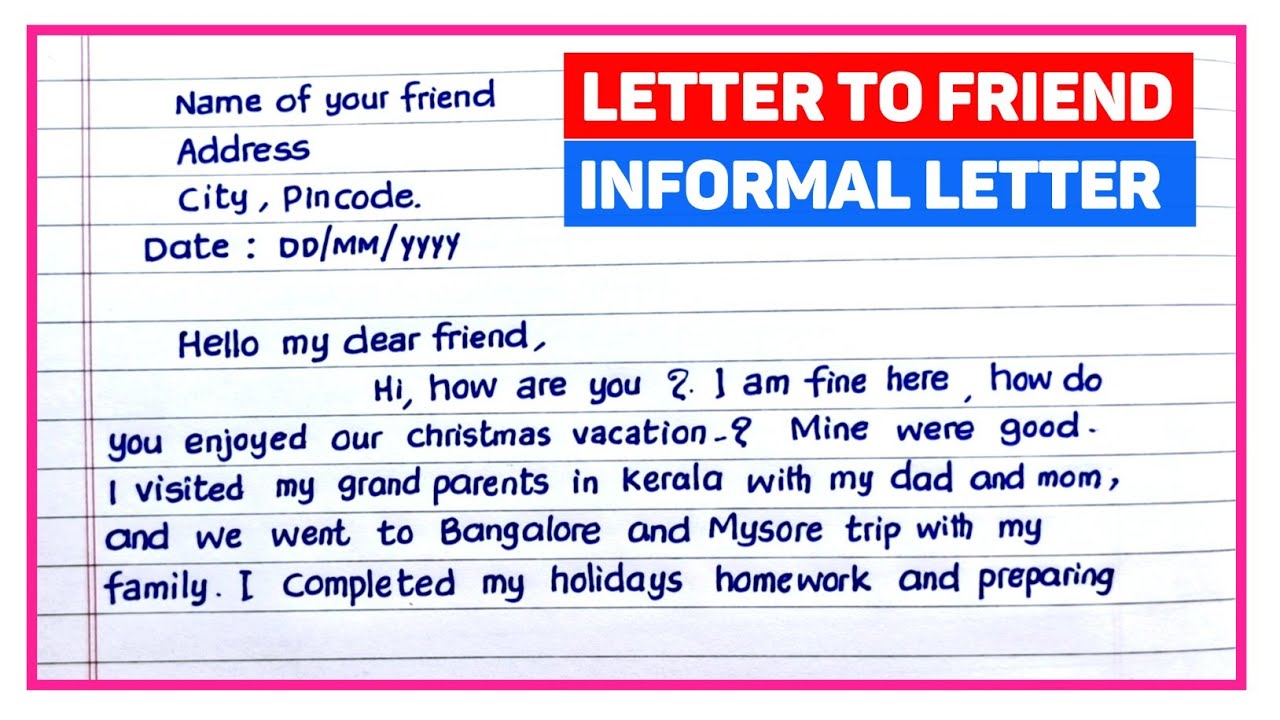 Name of your friend
Address
City, Pincode.
Date : DD/MM/YYYY
LETTER TO FRIEND
INFORMAL LETTER
Hello my dear friend,
Hi, how are you ?. I am fine here, how do
you enjoyed our christmas vacation-? Mine were good.
I visited my grand parents in Kerala with my dad and mom,
and we went to Bangalore and Mysore trip with my
family. I completed my holidays homework and preparing